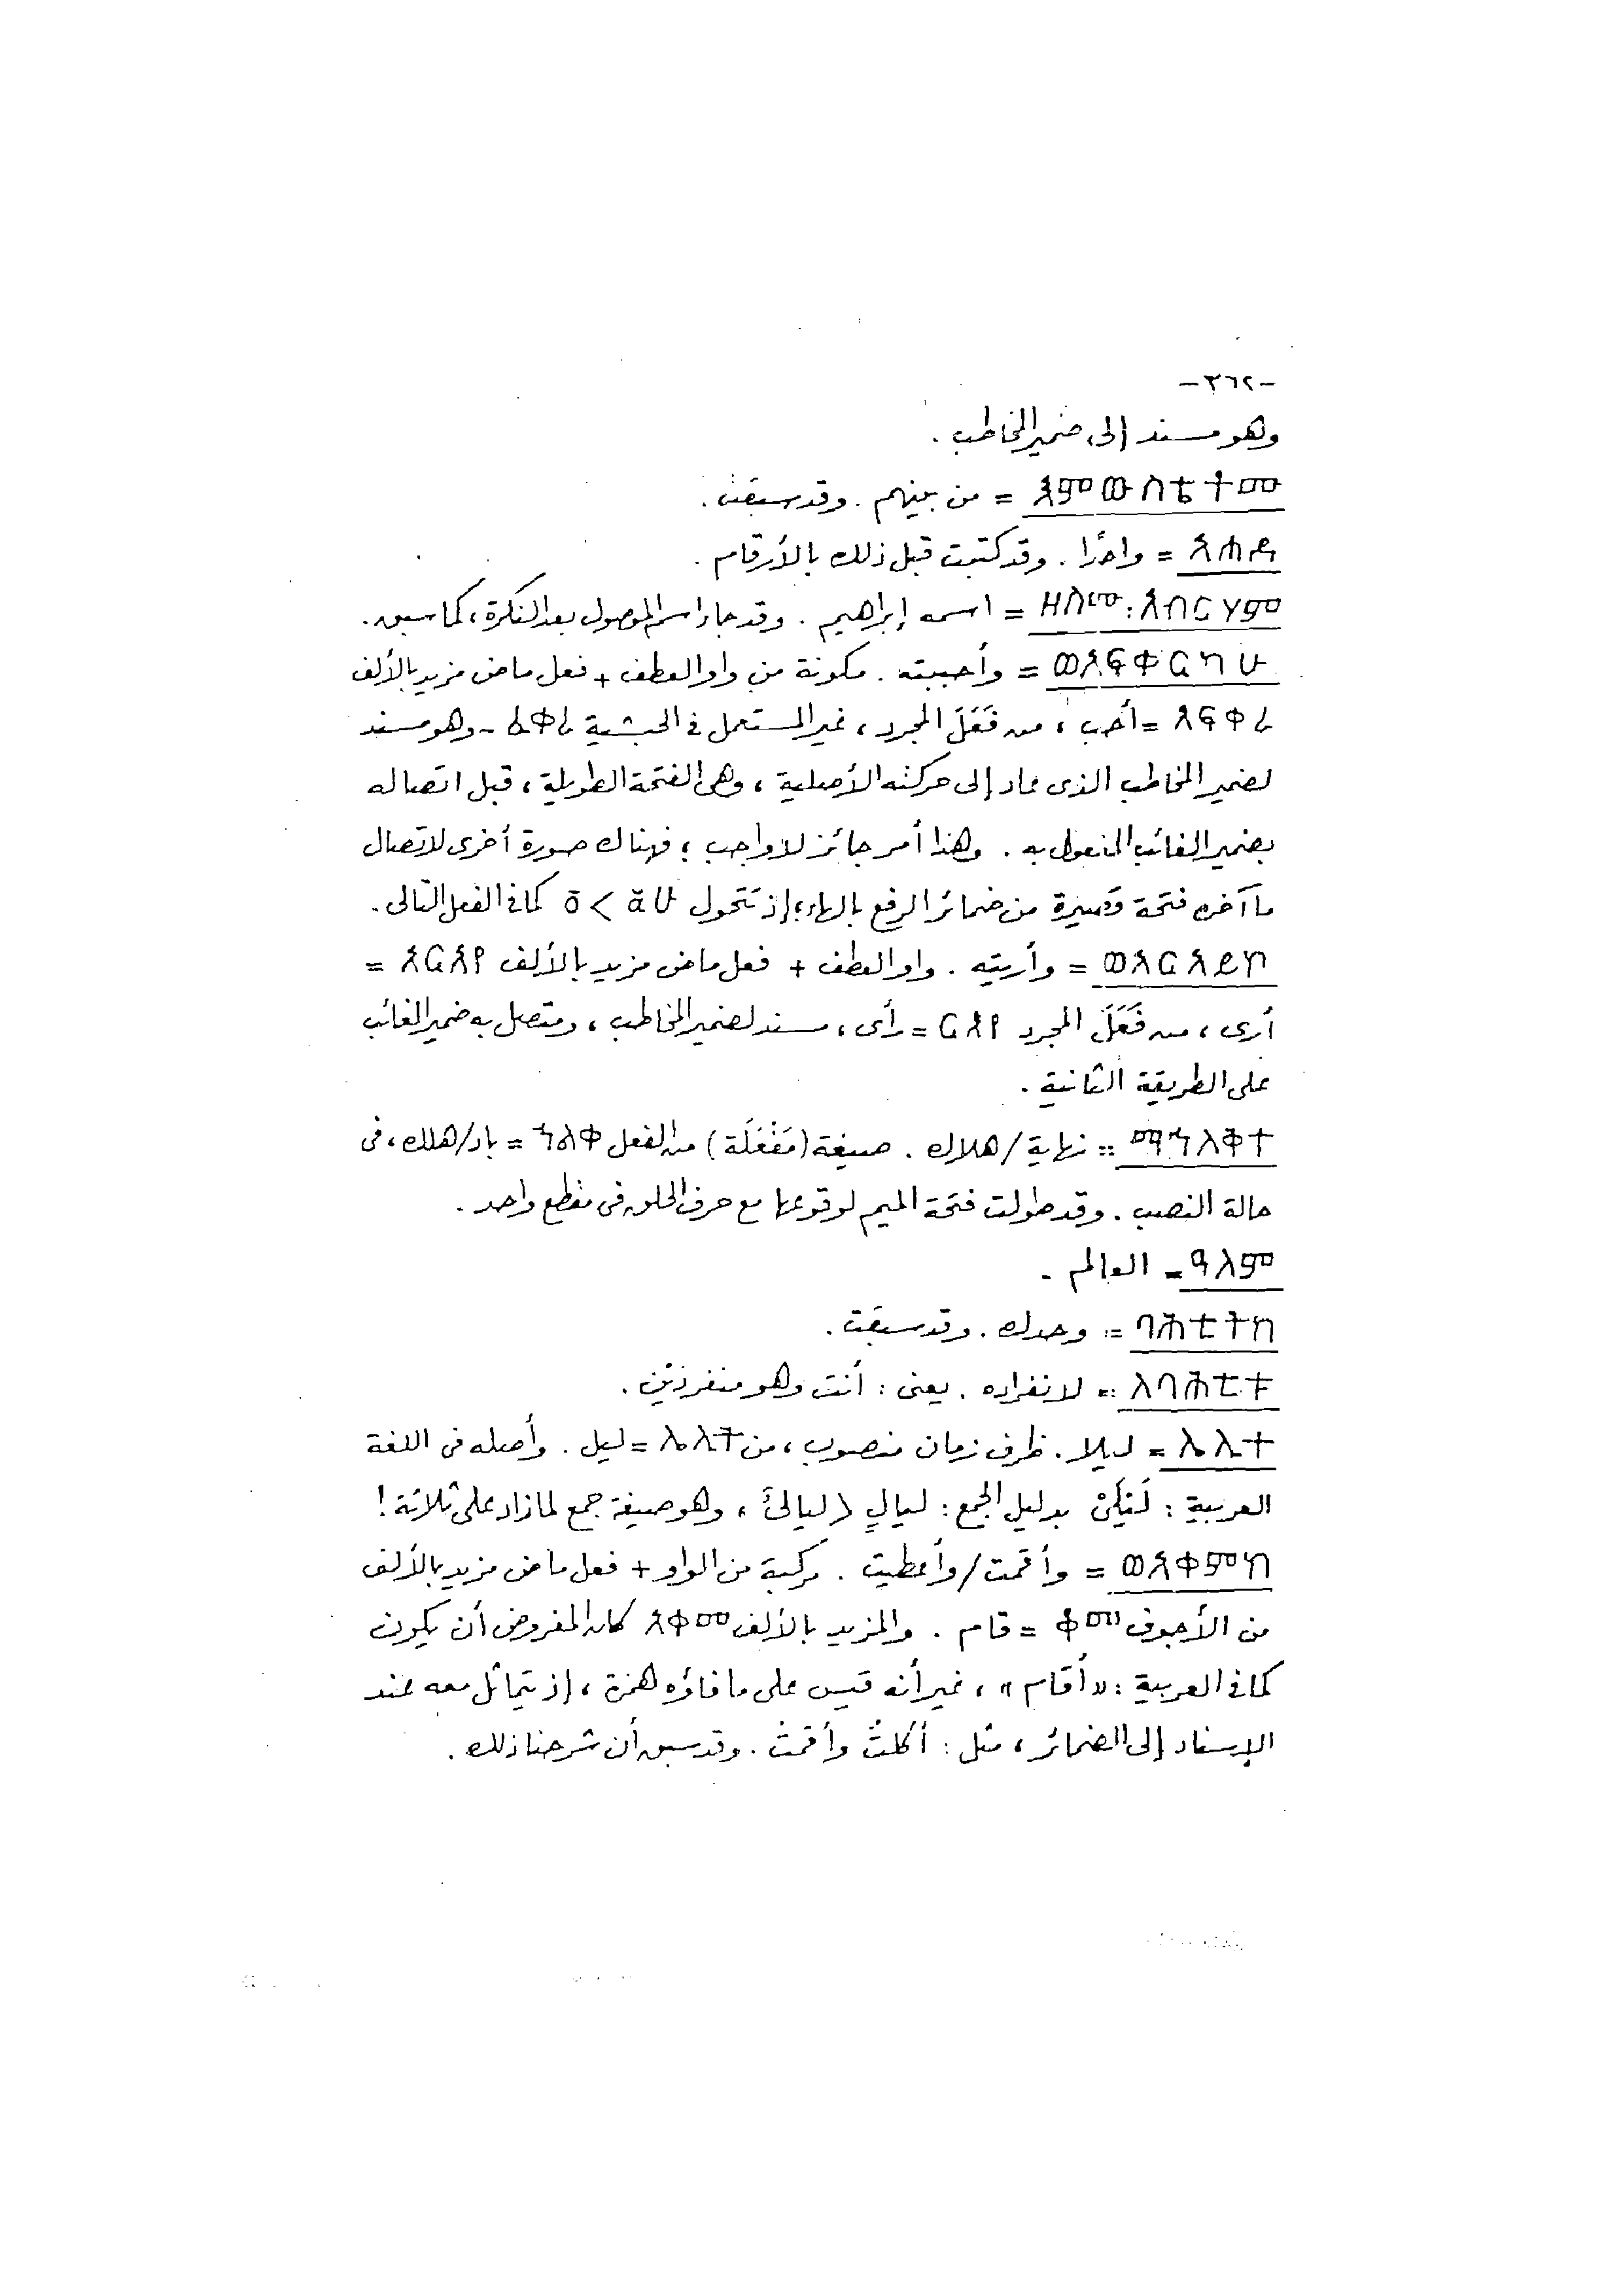 -٣٦٢-
وهو مسند إلى ضمير المخاطب .
እምውስቴቶሙ = من بينهم . وقد سبقت .
አሐደ = واحدًا . وقد كتبت قبل ذلك بالأرقام .
ዘስሙ፡አብርሃም = اسمه إبراهيم . وقد جاء اسم الموصول بعد النكرة ، كما سبق .
ወአፍቀርካሁ = وأحببته . مكونة من واو العطف + فعل ماض مزيد بالألف
አፍቀረ = أحب ، من فَعَلَ المجرد ، غير المستعمل فى الحبشية ፈቀረ - وهو مسند
لضمير المخاطب الذى عاد إلى حركته الأصلية ، وهى الفتحة الطويلة ، قبل اتصاله
بضمير الغائب المفعول به . وهذا أمر جائز لا واجب ؛ فهناك صورة أخرى لاتصال
ما آخره فتحة قصيرة من ضمائر الرفع بالهاء ؛ إذ تتحول ō < ăU كما فى الفعل التالى .
ወአርአይኮ = وأريته . واو العطف + فعل ماض مزيد بالألف አርአየ =
أرى ، من فَعَلَ المجرد ርእየ = رأى ، مسند لضمير المخاطب ، ومتصل به ضمير الغائب
على الطريقة الثانية .
ማኅለቅተ = نهاية / هلاك . صيغة (مَفْعَلَة) من الفعل ኀልቀ = باد / هلك ، فى
حالة النصب . وقد طولت فتحة الميم لوقوعها مع حرف الحلق فى مقطع واحد .
ዓለም = العالم .
ባሕቲትከ = وحدك . وقد سبقت .
ለባሕቲቱ = لانفراده . يعنى : أنت وهو منفردَيْن .
ሌሊተ = ليلا . ظرف زمان منصوب ، من ሌሊት = ليل . وأصله فى اللغة
العربية : لَيْلَىٌ بدليل الجمع : ليالٍ < ليالىٌ ، وهو صيغة جمع لما زاد على ثلاثة !
ወአቀምከ = وأقمت / وأعطيت . مركبة من الواو + فعل ماض مزيد بالألف
من الأجوف ቆመ = قام . والمزيد بالألف አቀመ كان المفروض أن يكون
كما فى العربية : « أقام » ، غير أنه قيس على ما فاؤه همزة ، إذ يتماثل معه عند
الإسناد إلى الضمائر ، مثل : أكلتُ وأقمتُ . وقد سبق أن شرحنا ذلك .